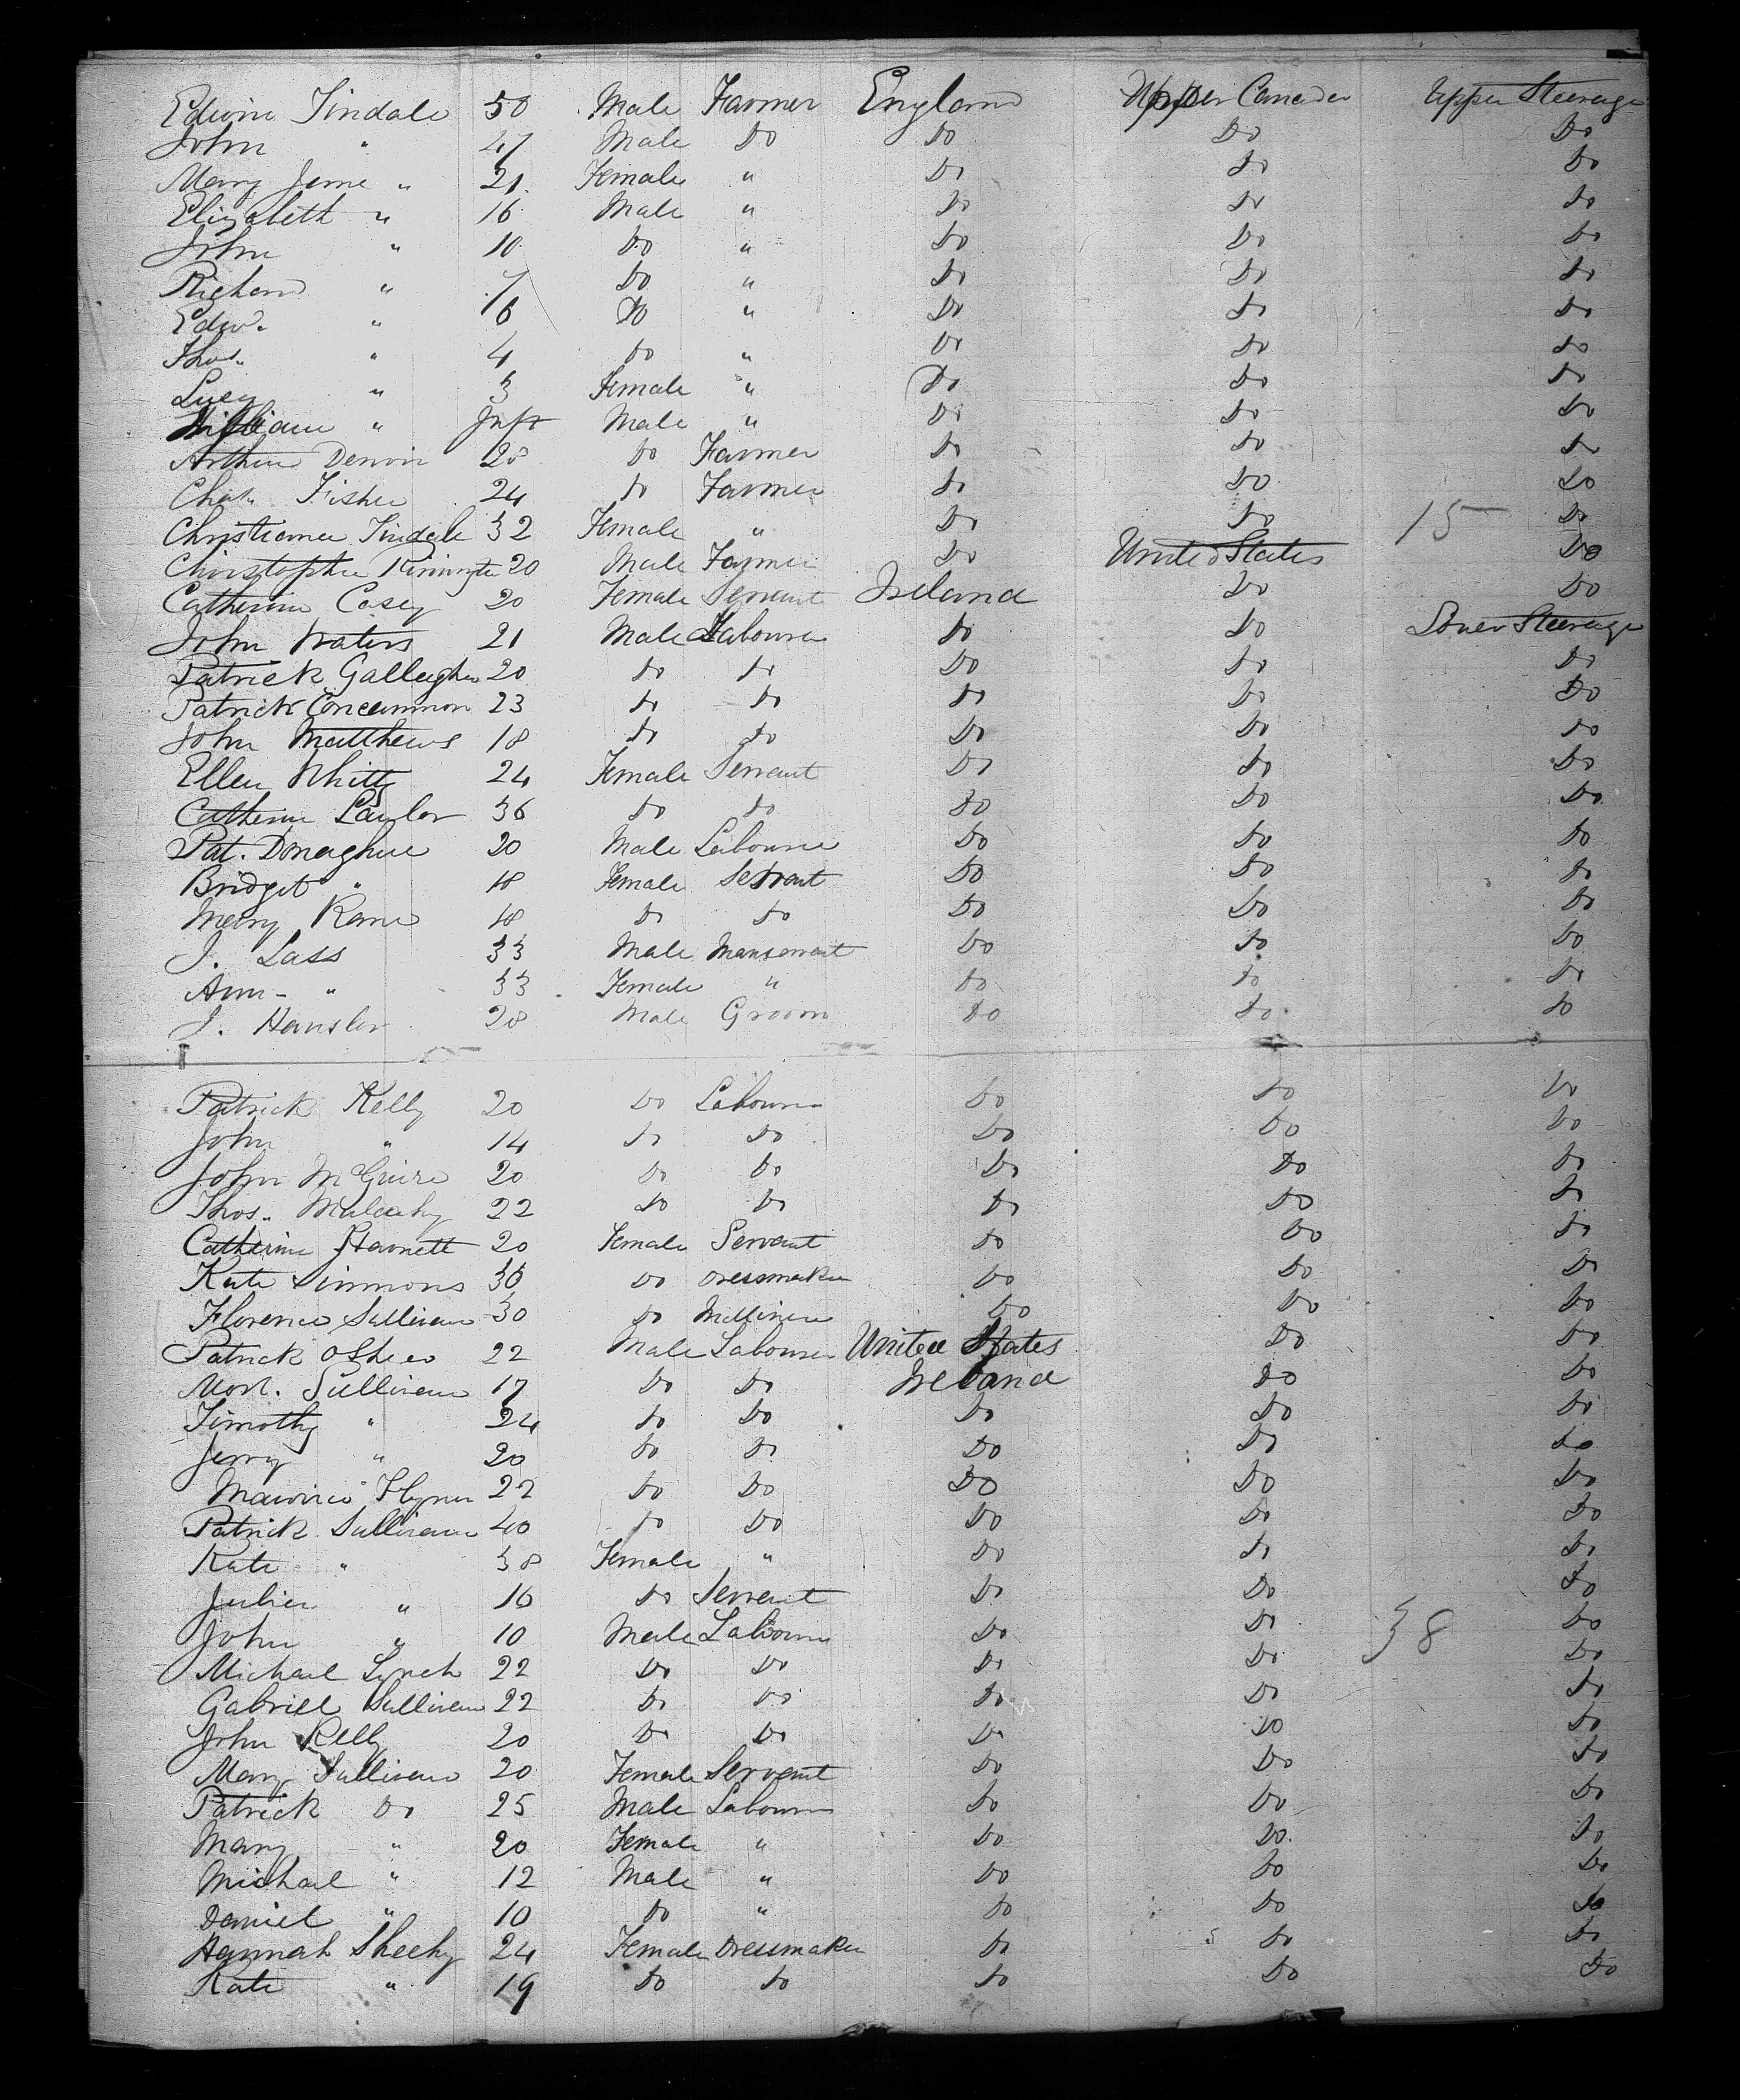 Edwin Tindale 50 Male Farmer England Upper Canada Upper Steerage
John " 47 Male Do Do Do Do
Mary Jane " 21 Female " Do Do Do
Elizabeth " 16 Male " Do Do Do
John " 10 Do " Do Do Do
Richard " 7 Do " Do Do Do
Edwd. " 6 Do " Do Do Do
Thos. " 4 Do " Do Do Do
Lucy " 3 Female " Do Do Do
William " Inft Male " Do Do Do
Arthur 28 Do Farmer Do Do Do
Chas. Fisher 24 Do Farmer Do Do Do
Christiana Tindale 32 Female " Do Do 15 Do
Christopher 20 Male Farmer Do United States Do
Catherine Casey 20 Female Servant Ireland Do Do
John Waters 21 Male Labourer Do Do Lower Steerage
Patrick Gallagher 20 Do Do Do Do Do
Patrick Concannon 23 Do Do Do Do Do
John Matthews 18 Do Do Do Do Do
Ellen Whitty 24 Female Servant Do Do Do
Catherine Lawlor 36 Do Do Do Do Do
Pat. Donaghue 20 Male Labourer Do Do Do
Bridget " 18 Female Servant Do Do Do
Mary Kane 18 Do Do Do Do Do
J. Lass 33 Male Manservant Do Do Do
Ann - " 33 Female " Do Do Do
J. 28 Male Groom Do Do Do
Patrick Kelly 20 Do Labourer Do Do Do
John " 14 Do Do Do Do Do
John McGuire 20 Do Do Do Do Do
Thos. Mulcahy 22 Do Do Do Do Do
Catherine Harnett 20 Female Servant Do Do Do
Kate Simmons 30 Do Dressmaker Do Do Do
Florence Sullivan 30 Do Milliner Do Do Do
Patrick OShea 22 Male Labourer United States Do Do
Mort. Sullivan 17 Do Do Ireland Do Do
Timothy " 24 Do Do Do Do Do
Jerry " 20 Do Do Do Do Do
Maurice Flynn 22 Do Do Do Do Do
Patrick Sullivan 40 Do Do Do Do Do
Kate " 38 Female " Do Do Do
Julia " 16 Do Servant Do Do Do
John " 10 Male Labourer Do Do 38 Do
Michael Lynch 22 Do Do Do Do Do
Gabriel Sullivan 22 Do Do Do Do Do
John Kelly 20 Do Do Do Do Do
Mary Sullivan 20 Female Servant Do Do Do
Patrick Do 25 Male Labourer Do Do Do
Mary " 20 Female " Do Do Do
Michael " 12 Male " Do Do Do
Daniel " 10 Do " Do Do Do
Hannah Sheehy 24 Female Dressmaker Do Do Do
Kate " 19 Do Do Do Do Do